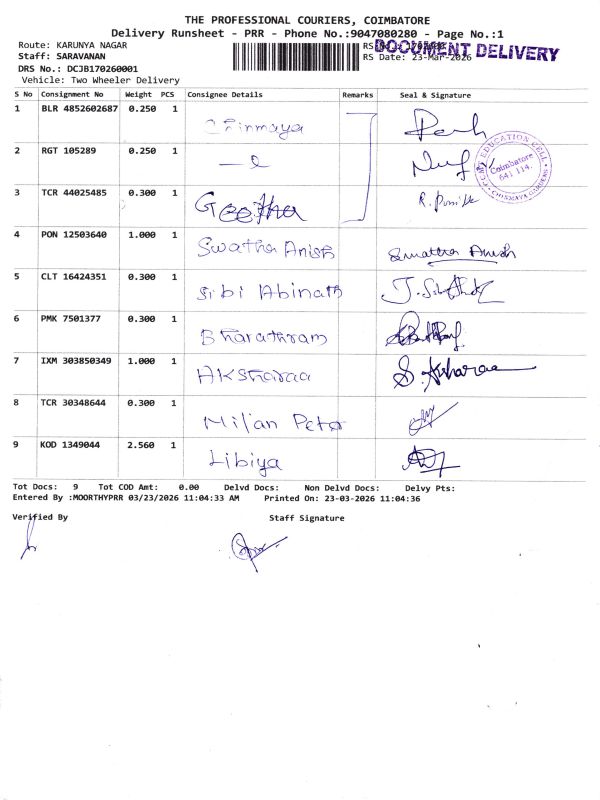 THE PROFESSIONAL COURIERS, COIMBATORE
Delivery Runsheet - PRR - Phone No.:9047080280 - Page No.:1
Route: KARUNYA NAGAR
DOCUMENT DELIVERY
Staff: SARAVANAN
RS Date: 23-Mar-2026
DRS No.: DCJB170260001
Vehicle: Two Wheeler Delivery
S No Consignment No Weight PCS Consignee Details Remarks Seal & Signature
1 BLR 4852602687 0.250 1 Chinmaya
2 RGT 105289 0.250 1
EDUCATION CELL
Coimbatore
641 114.
3 TCR 44025485 0.300 1 Geetha
4 PON 12503640 1.000 1 Swatha Anish Swatha Anish
5 CLT 16424351 0.300 1 Sibi Abinath
6 PMK 7501377 0.300 1 Bharathram
7 IXM 303850349 1.000 1 Aksharaa S. Aksharaa
8 TCR 30348644 0.300 1 Milan Peto
9 KOD 1349044 2.560 1 Libiya
Tot Docs: 9 Tot COD Amt: 0.00 Delvd Docs: Non Delvd Docs: Delvy Pts:
Entered By :MOORTHYPRR 03/23/2026 11:04:33 AM Printed On: 23-03-2026 11:04:36
Verified By Staff Signature